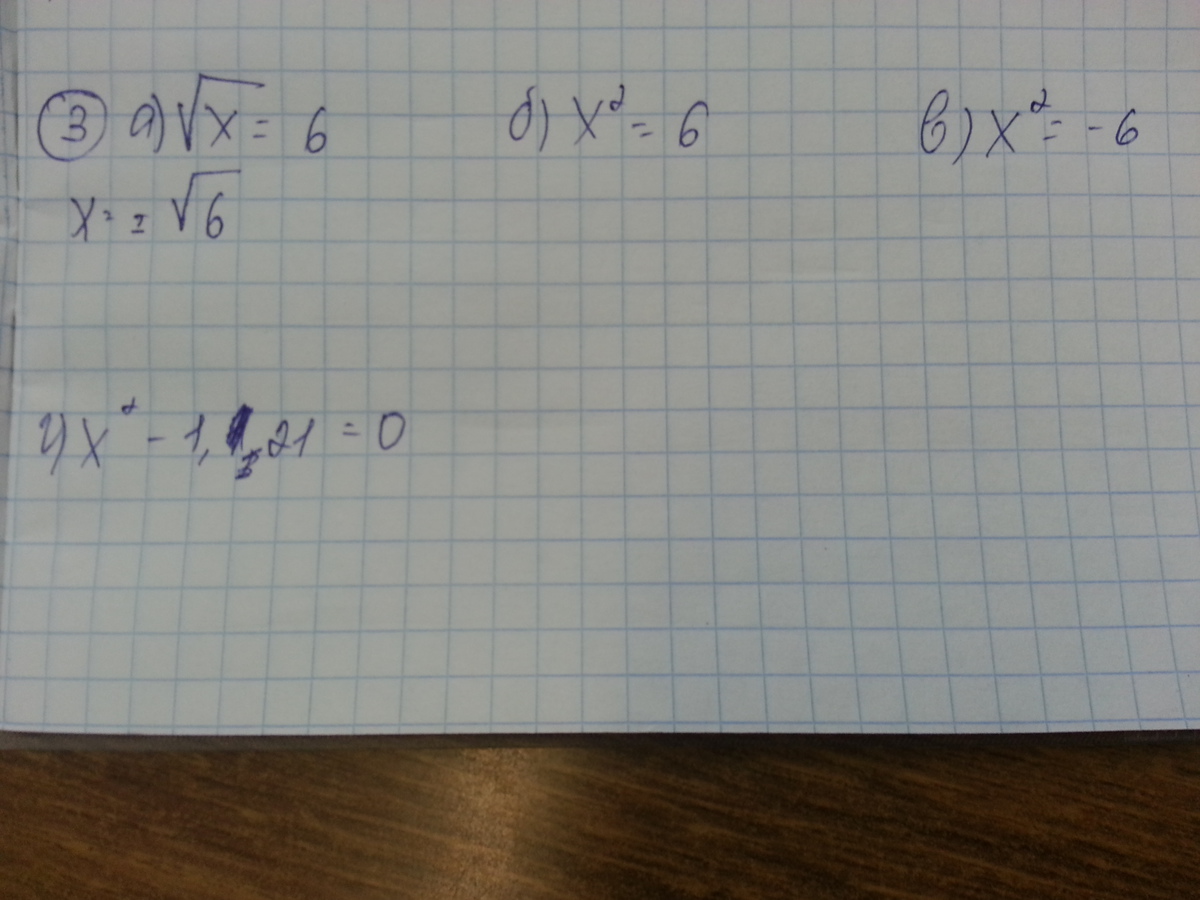 ③ а) √x = 6 б) x² = 6 в) x² = -6
x = ± √6
г) x² - 1,21 = 0